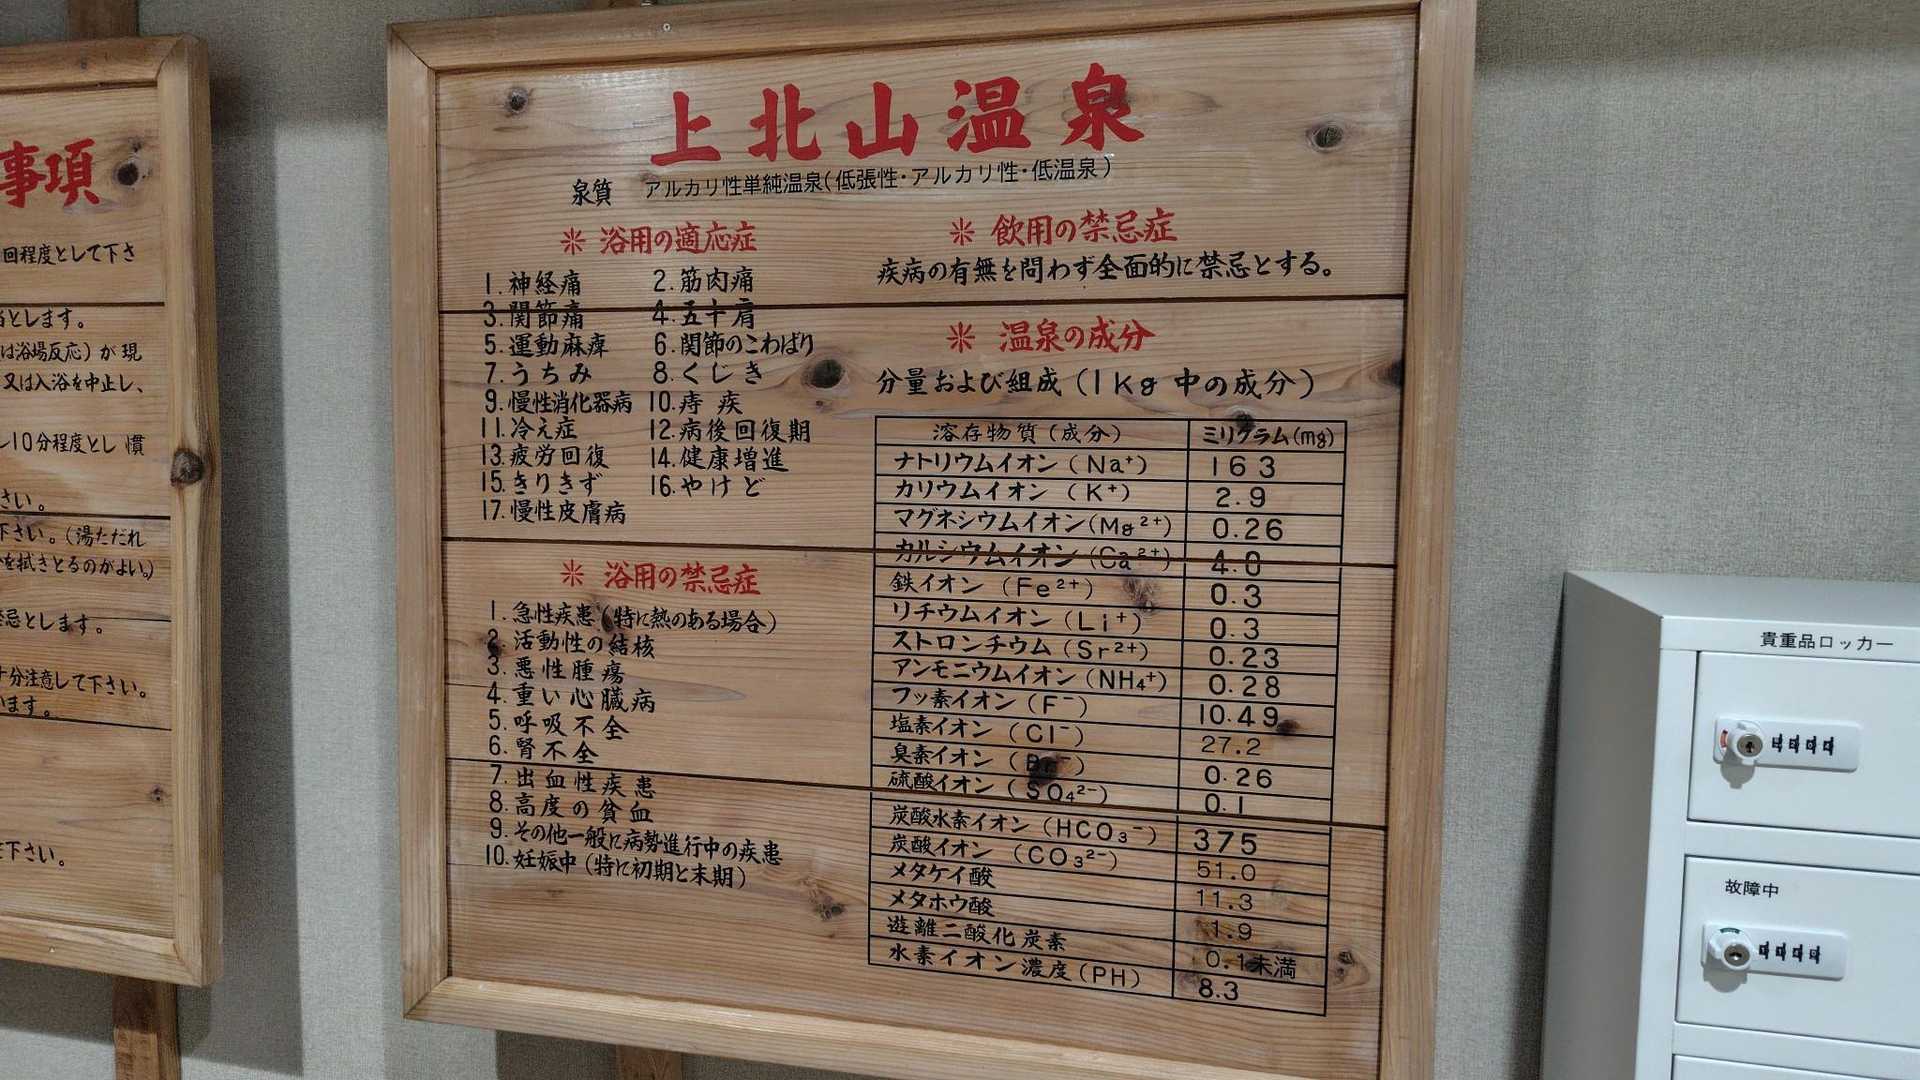 事項
回程度として下さ
とします。
は浴場反応）が現
又は入浴を中止し、
10分程度とし慣
さい。
下さい。（湯ただれ
を拭きとるのがよい。）
忌とします。
十分注意して下さい。
います。
下さい。
上北山温泉
泉質 アルカリ性単純温泉(低張性・アルカリ性・低温泉)
＊ 浴用の適応症
1.神経痛 2.筋肉痛
3.関節痛 4.五十肩
5.運動麻痺 6.関節のこわばり
7.うちみ 8.くじき
9.慢性消化器病 10.痔疾
11.冷え症 12.病後回復期
13.疲労回復 14.健康増進
15.きりきず 16.やけど
17.慢性皮膚病
＊ 浴用の禁忌症
1.急性疾患(特に熱のある場合)
2.活動性の結核
3.悪性腫瘍
4.重い心臓病
5.呼吸不全
6.腎不全
7.出血性疾患
8.高度の貧血
9.その他一般に病勢進行中の疾患
10.妊娠中(特に初期と末期)
＊ 飲用の禁忌症
疾病の有無を問わず全面的に禁忌とする。
＊ 温泉の成分
分量および組成(1kg中の成分)
溶存物質(成分) ミリグラム(mg)
ナトリウムイオン(Na⁺) 163
カリウムイオン(K⁺) 2.9
マグネシウムイオン(Mg²⁺) 0.26
カルシウムイオン(Ca²⁺) 4.0
鉄イオン(Fe²⁺) 0.3
リチウムイオン(Li⁺) 0.3
ストロンチウム(Sr²⁺) 0.23
アンモニウムイオン(NH₄⁺) 0.28
フッ素イオン(F⁻) 10.49
塩素イオン(Cl⁻) 27.2
臭素イオン(Br⁻) 0.26
硫酸イオン(SO₄²⁻) 0.1
炭酸水素イオン(HCO₃⁻) 375
炭酸イオン(CO₃²⁻) 51.0
メタケイ酸 11.3
メタホウ酸 1.9
遊離二酸化炭素 0.1未満
水素イオン濃度(PH) 8.3
貴重品ロッカー
故障中